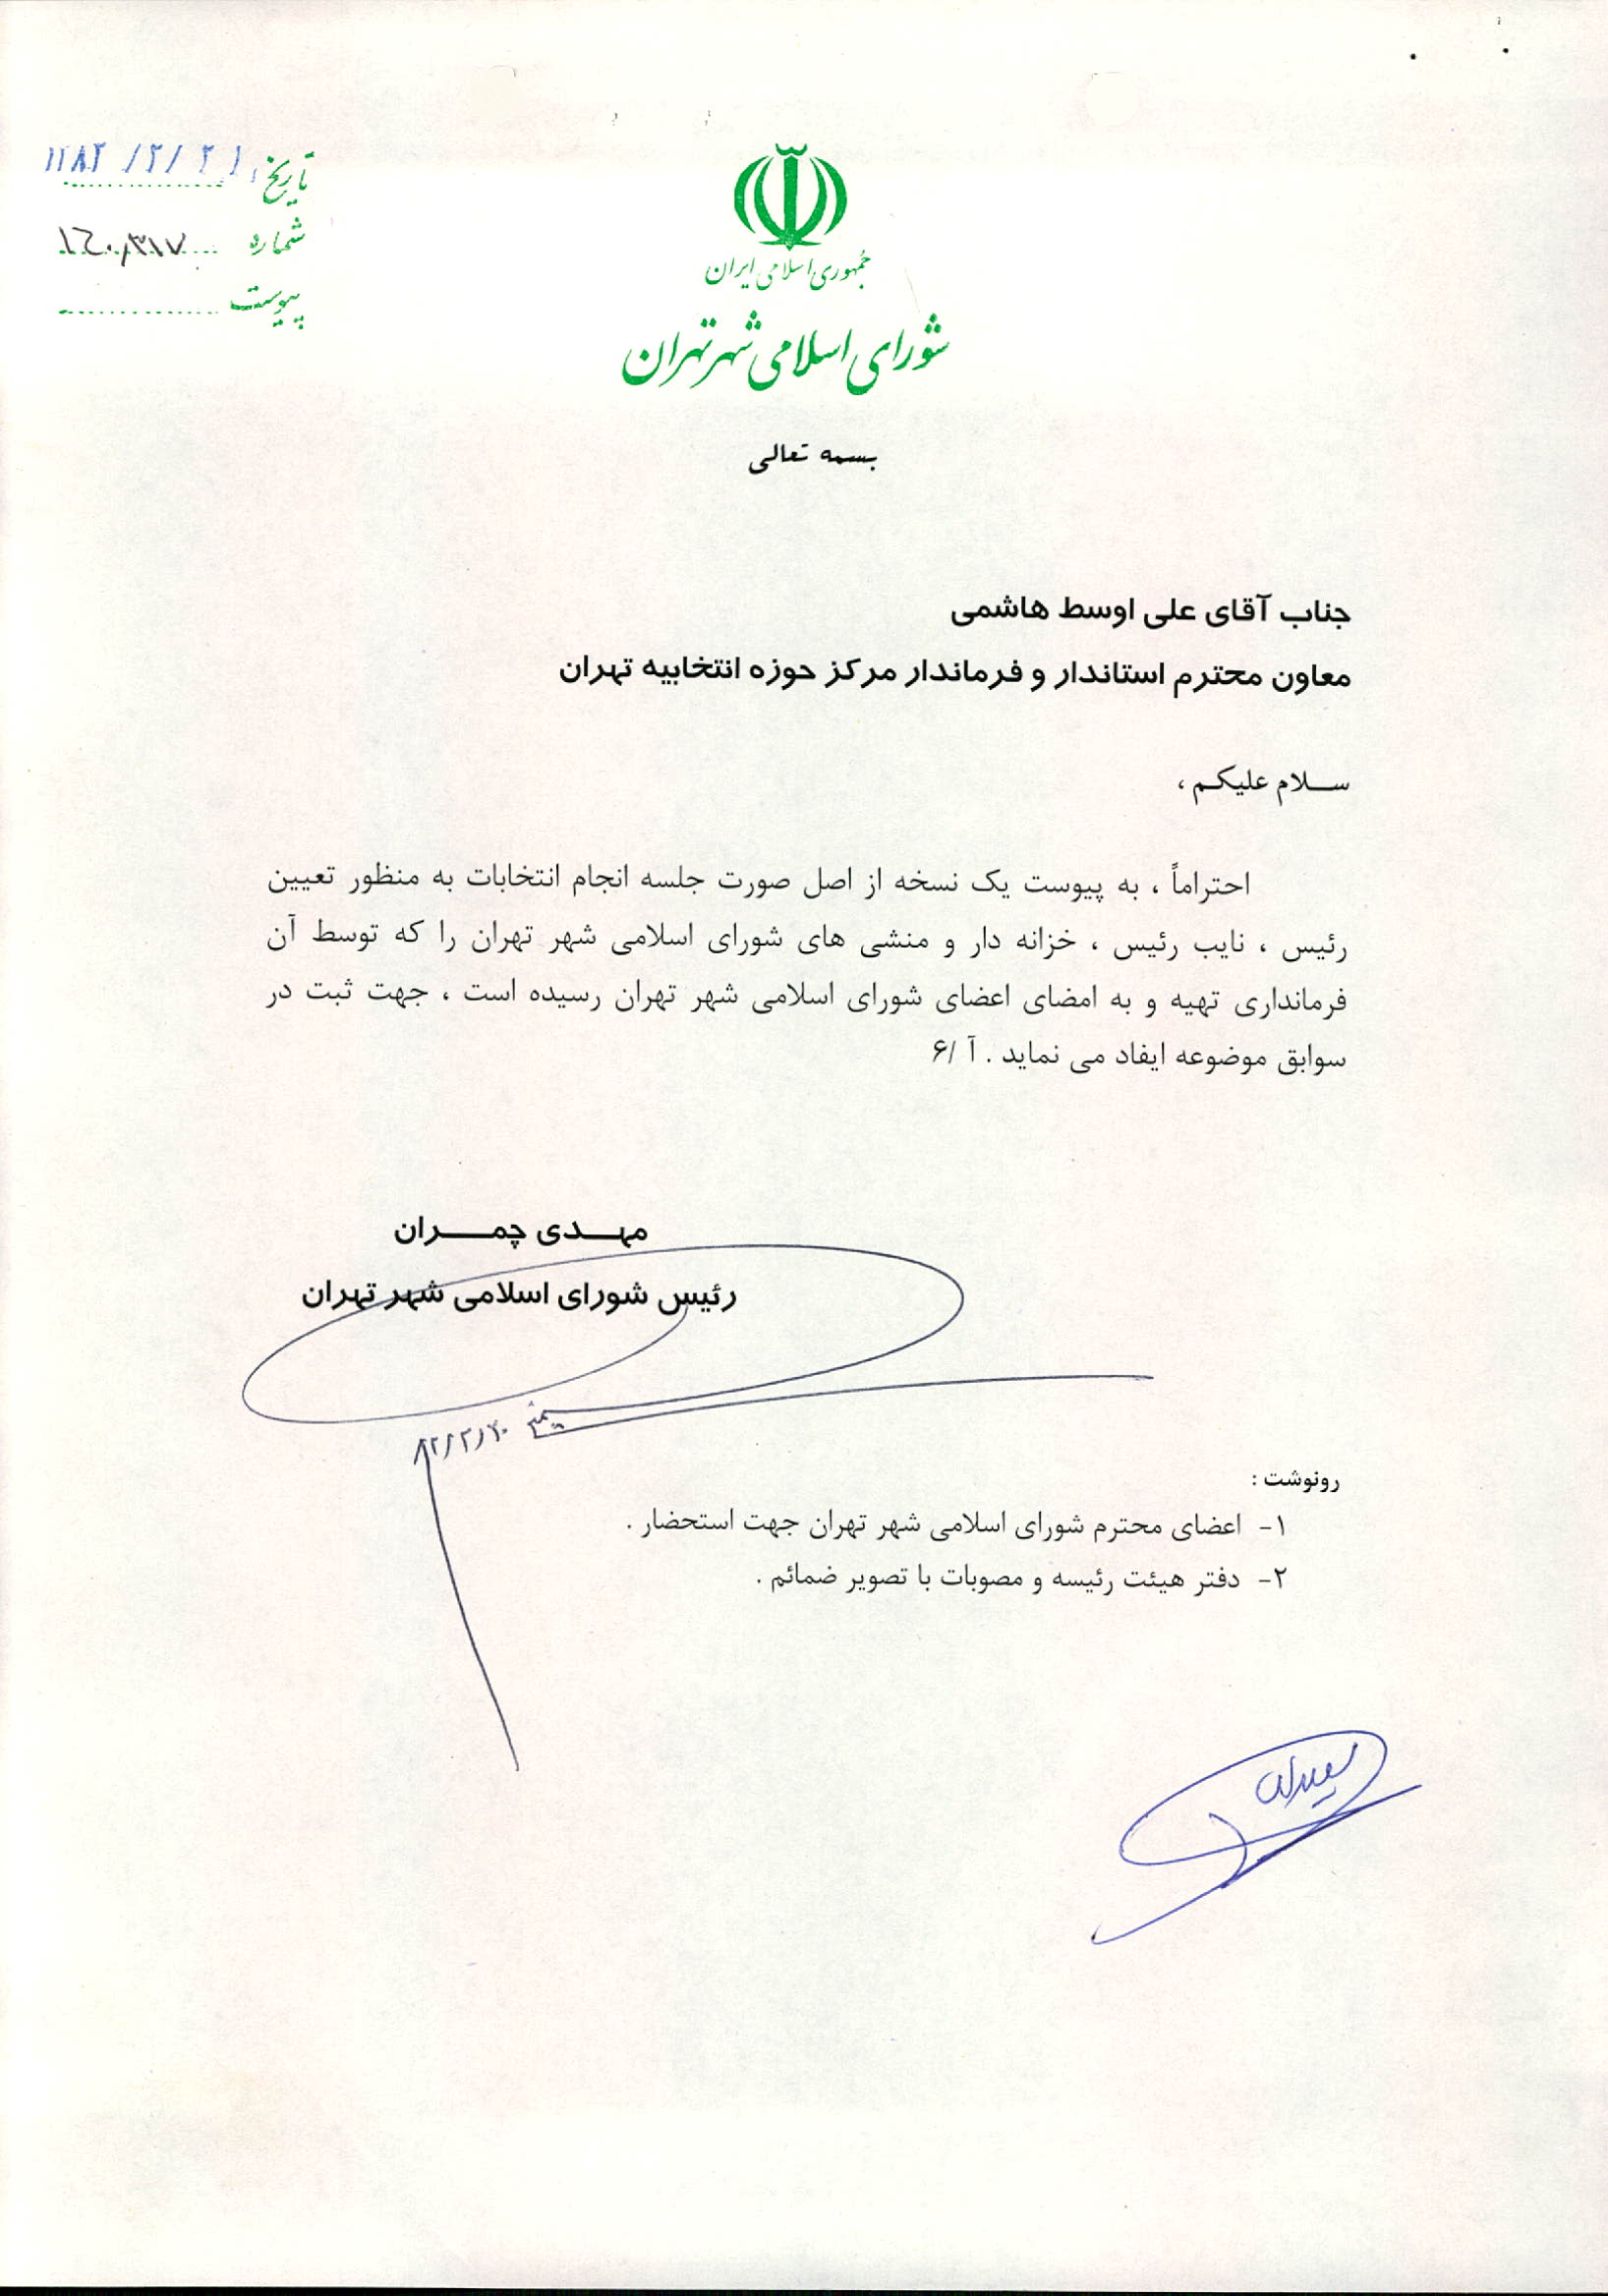 تاریخ: ۱۳۸۲/۲/۲۱
شماره
پیوست
جمهوری اسلامی ایران
شورای اسلامی شهر تهران
بسمه تعالی
جناب آقای علی اوسط هاشمی
معاون محترم استاندار و فرماندار مرکز حوزه انتخابیه تهران
سـلام علیکم ،
احتراماً ، به پیوست یک نسخه از اصل صورت جلسه انجام انتخابات به منظور تعیین
رئیس ، نایب رئیس ، خزانه دار و منشی های شورای اسلامی شهر تهران را که توسط آن
فرمانداری تهیه و به امضای اعضای شورای اسلامی شهر تهران رسیده است ، جهت ثبت در
سوابق موضوعه ایفاد می نماید . آ /۶
مهـدی چمـران
رئیس شورای اسلامی شهر تهران
۸۲/۲/۲۰
رونوشت :
۱- اعضای محترم شورای اسلامی شهر تهران جهت استحضار .
۲- دفتر هیئت رئیسه و مصوبات با تصویر ضمائم .